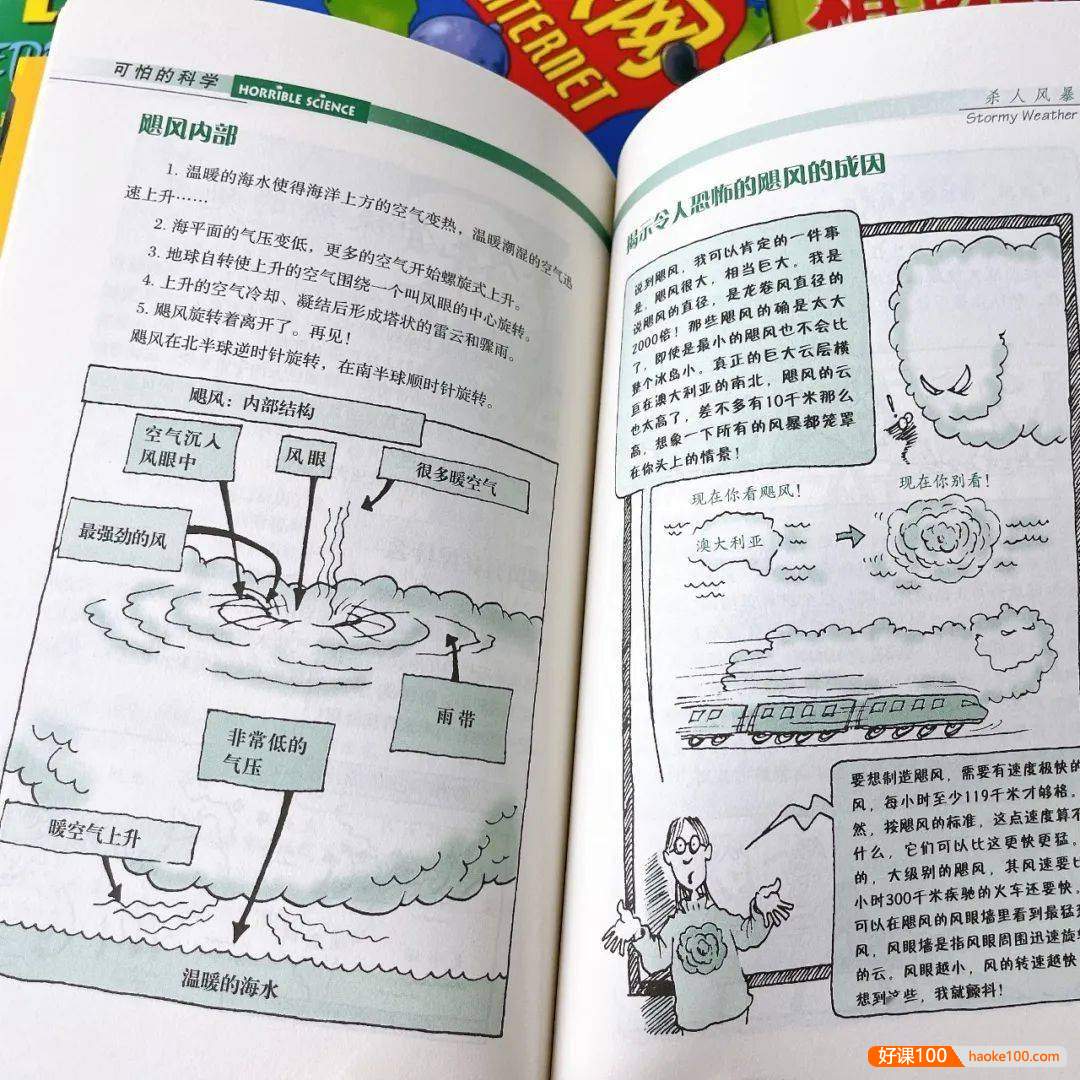 INTERNET
可怕的科学
HORRIBLE SCIENCE
飓风内部
1. 温暖的海水使得海洋上方的空气变热，温暖潮湿的空气迅
速上升……
2. 海平面的气压变低，更多的空气开始螺旋式上升。
3. 地球自转使上升的空气围绕一个叫风眼的中心旋转。
4. 上升的空气冷却、凝结后形成塔状的雷云和骤雨。
5. 飓风旋转着离开了。再见！
飓风在北半球逆时针旋转，在南半球顺时针旋转。
飓风：内部结构
空气沉入
风眼中
风眼
很多暖空气
最强劲的风
雨带
非常低的
气压
暖空气上升
温暖的海水
杀人风暴
Stormy Weather
揭示令人恐怖的飓风的成因
说到飓风，我可以肯定的一件事
是，飓风很大，相当巨大。我是
说飓风的直径，是龙卷风直径的
2000倍！那些飓风的确是太大
了，即使是最小的飓风也不会比
整个冰岛小。真正的巨大云层横
亘在澳大利亚的南北，飓风的云
也太高了，差不多有10千米那么
高，想象一下所有的风暴都笼罩
在你头上的情景！
现在你看飓风！
现在你别看！
澳大利亚
要想制造飓风，需要有速度极快的
风，每小时至少119千米才够格。
然，按飓风的标准，这点速度算不
什么，它们可以比这更快更猛。
的，大级别的飓风，其风速要比
小时300千米疾驰的火车还要快，
可以在飓风的风眼墙里看到最猛
风，风眼墙是指风眼周围迅速旋转
的云。风眼越小，风的转速越快
想到这些，我就颤抖！
好课100
haoke100.com